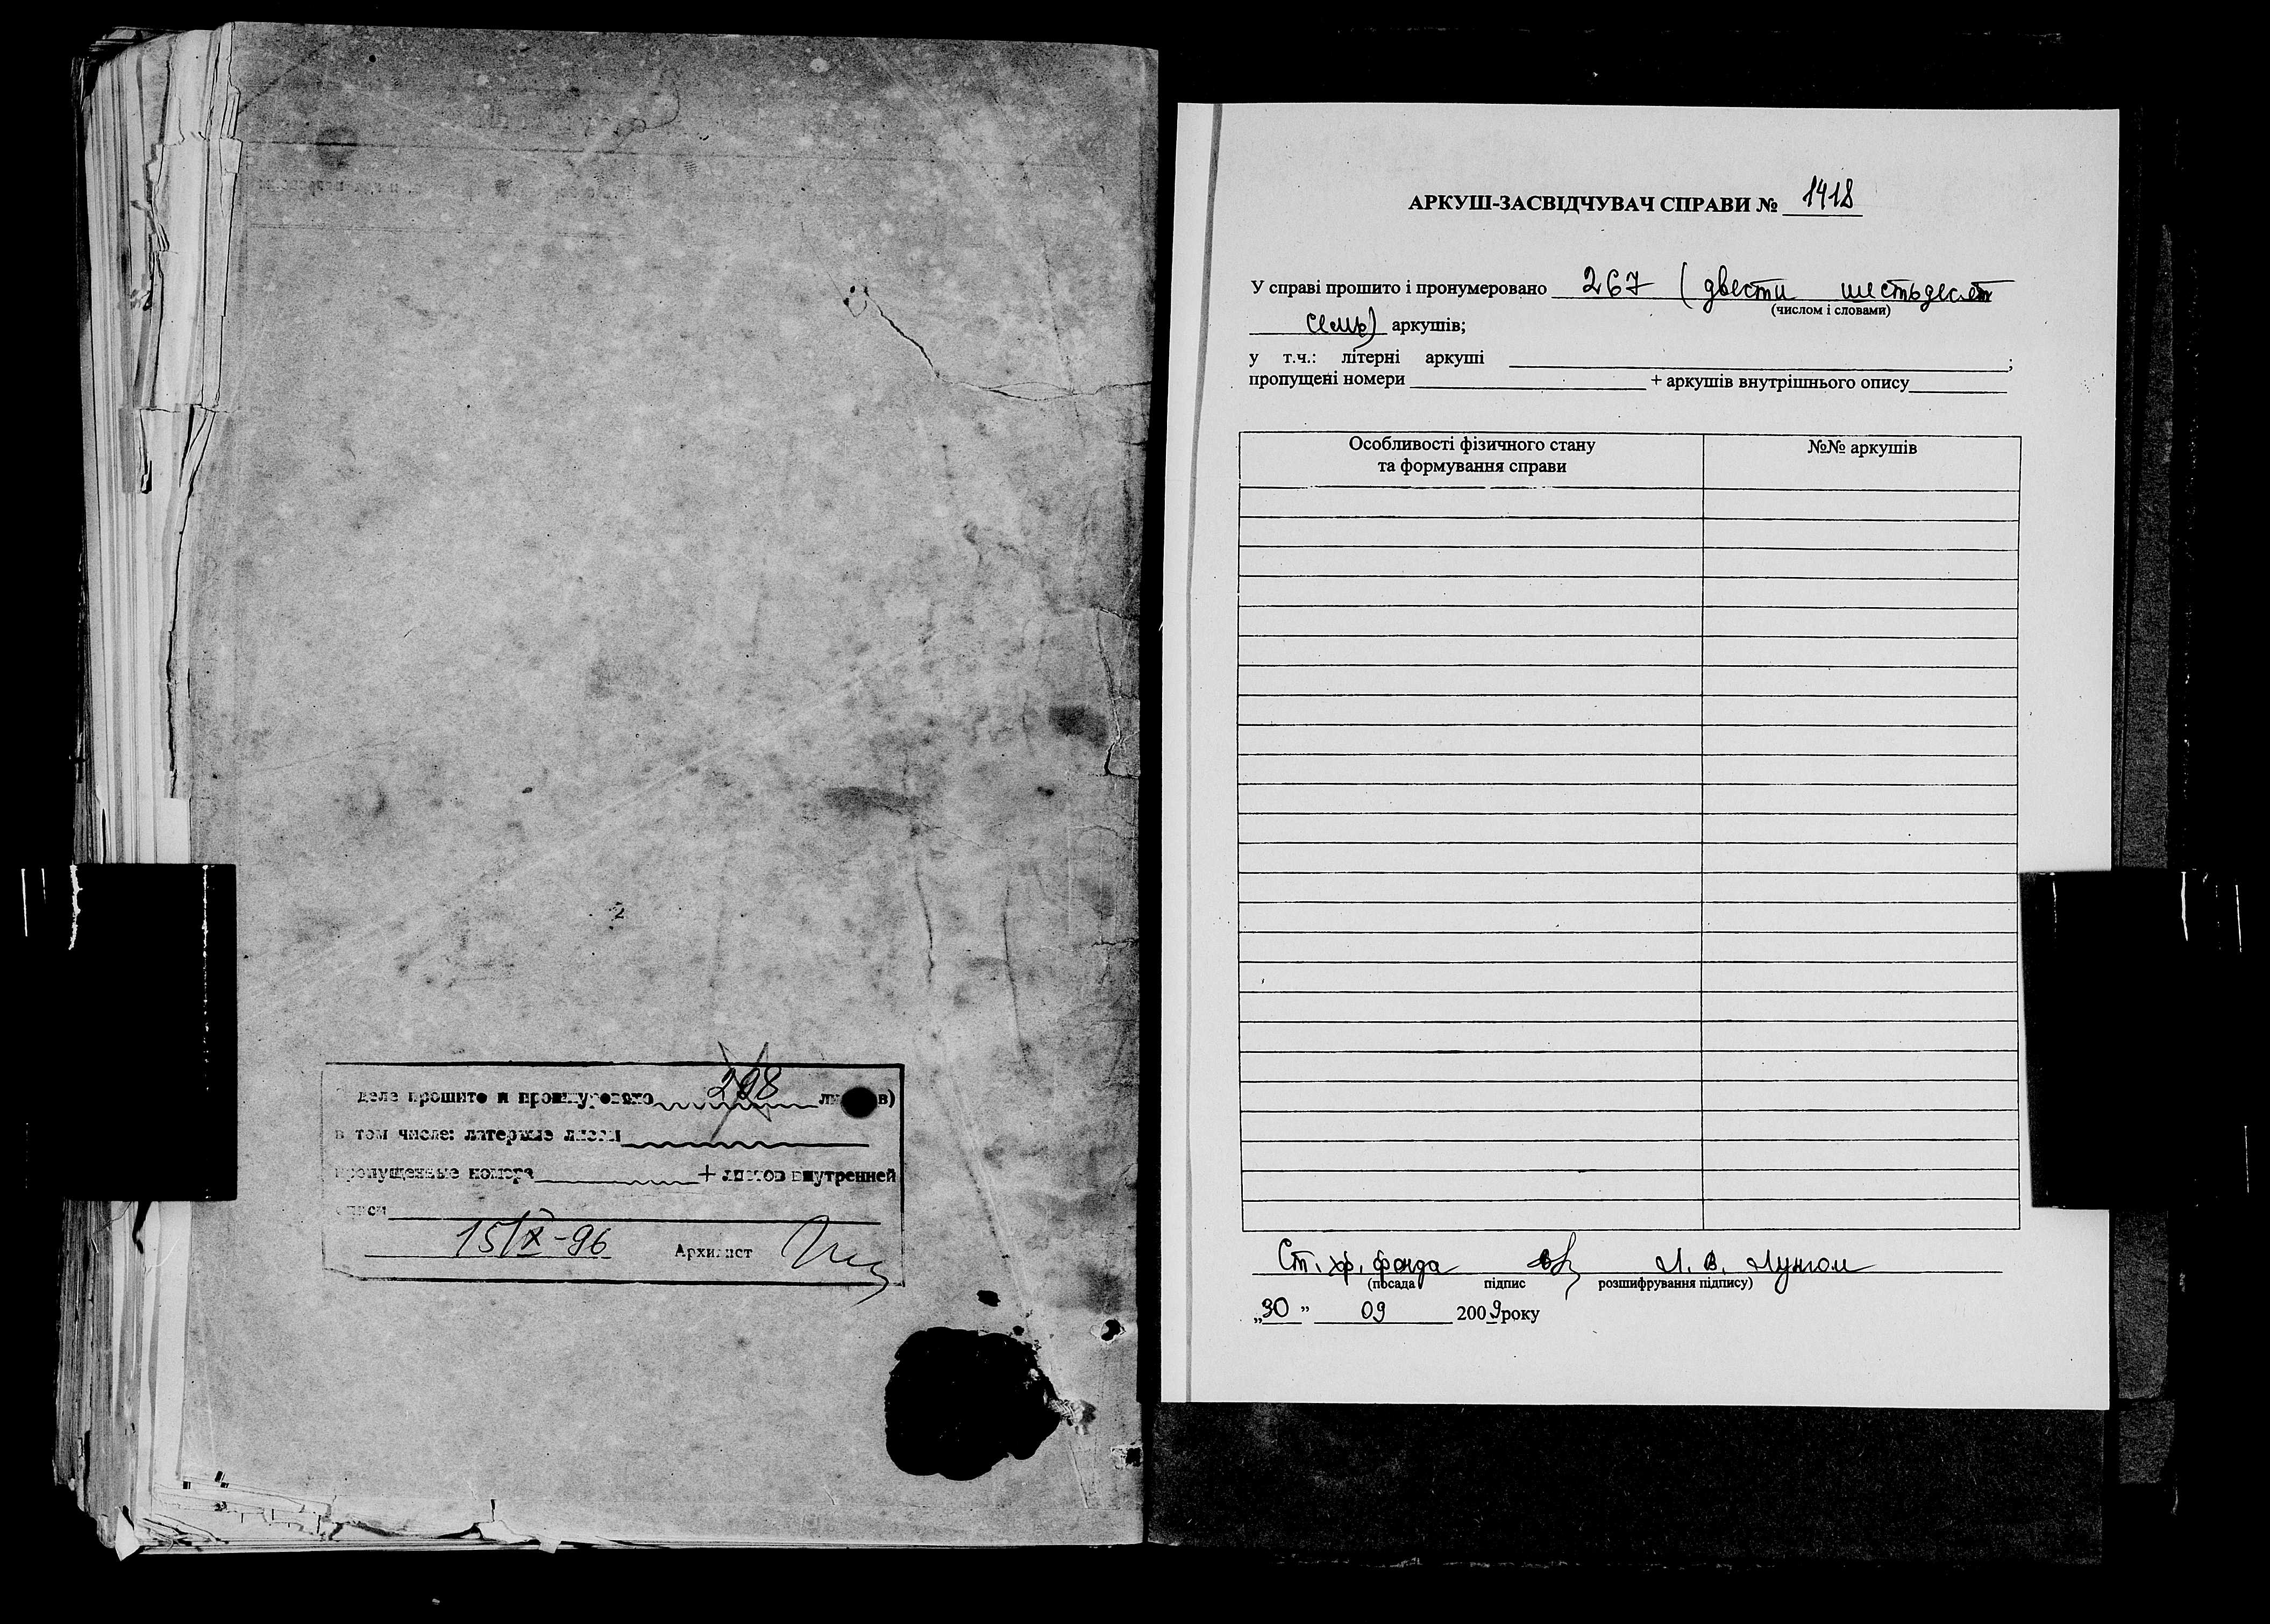 деле прошито и пронумеровано 298
в том числе: литерные листы
пропущенные номера + листов внутренней
описи
15/X-96 Архивист
АРКУШ-ЗАСВІДЧУВАЧ СПРАВИ № 1418
У справі прошито і пронумеровано 267 (двести шестьдесят
(числом і словами)
семь) аркушів;
у т.ч.: літерні аркуші ;
пропущені номери + аркушів внутрішнього опису
Особливості фізичного стану
та формування справи
№№ аркушів
Ст. хр. фонда Л. В.
(посада підпис розшифрування підпису)
„30” 09 2009року